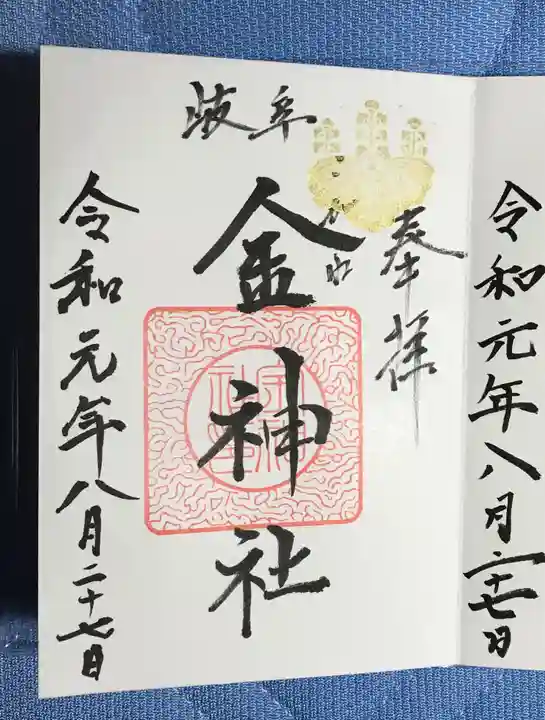 奉拝
岐阜
金神社
こがね
令和元年八月二十七日
令和元年八月二十七日